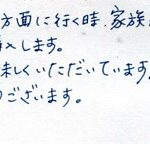 方面に行く時、家族
入します。
味しくいただいています
ございます。